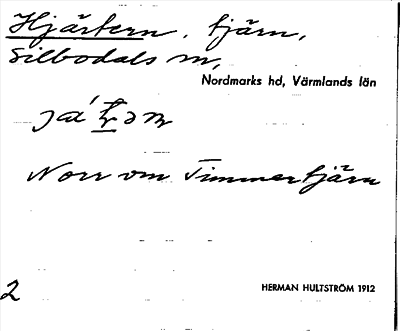 Hjärtern, tjärn,
Silbodals sn,
Nordmarks hd, Värmlands län
Norr om Timmertjärn
HERMAN HULTSTRÖM 1912
2